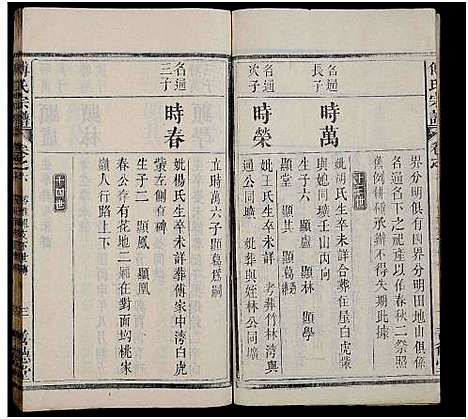 傅氏宗譜
界分明俱有四界分明田地山俱係
名通名下之祀產以作春秋二祭照
各種祠承辦不得失期此據
十三世
名通
長子
時萬
妣胡氏生卒未詳合葬在屋白虎
姚同墳壬山丙向
生子六 顯玉 顯林 顯學
顯堂 顯其 顯葛
名通
次子
時榮
妣王氏生卒未詳 考葬竹林灣與
通公同墳 妣葬與姪林公同墳
立時萬六子顯葛為嗣
名通
三子
時春
妣楊氏生卒未詳葬傅家中灣白虎
春公葬有花地二廂在對面坳桃家
生子二 顯鳳 顯皇
嶺人行路上下
十四世
傅氏宗譜
三